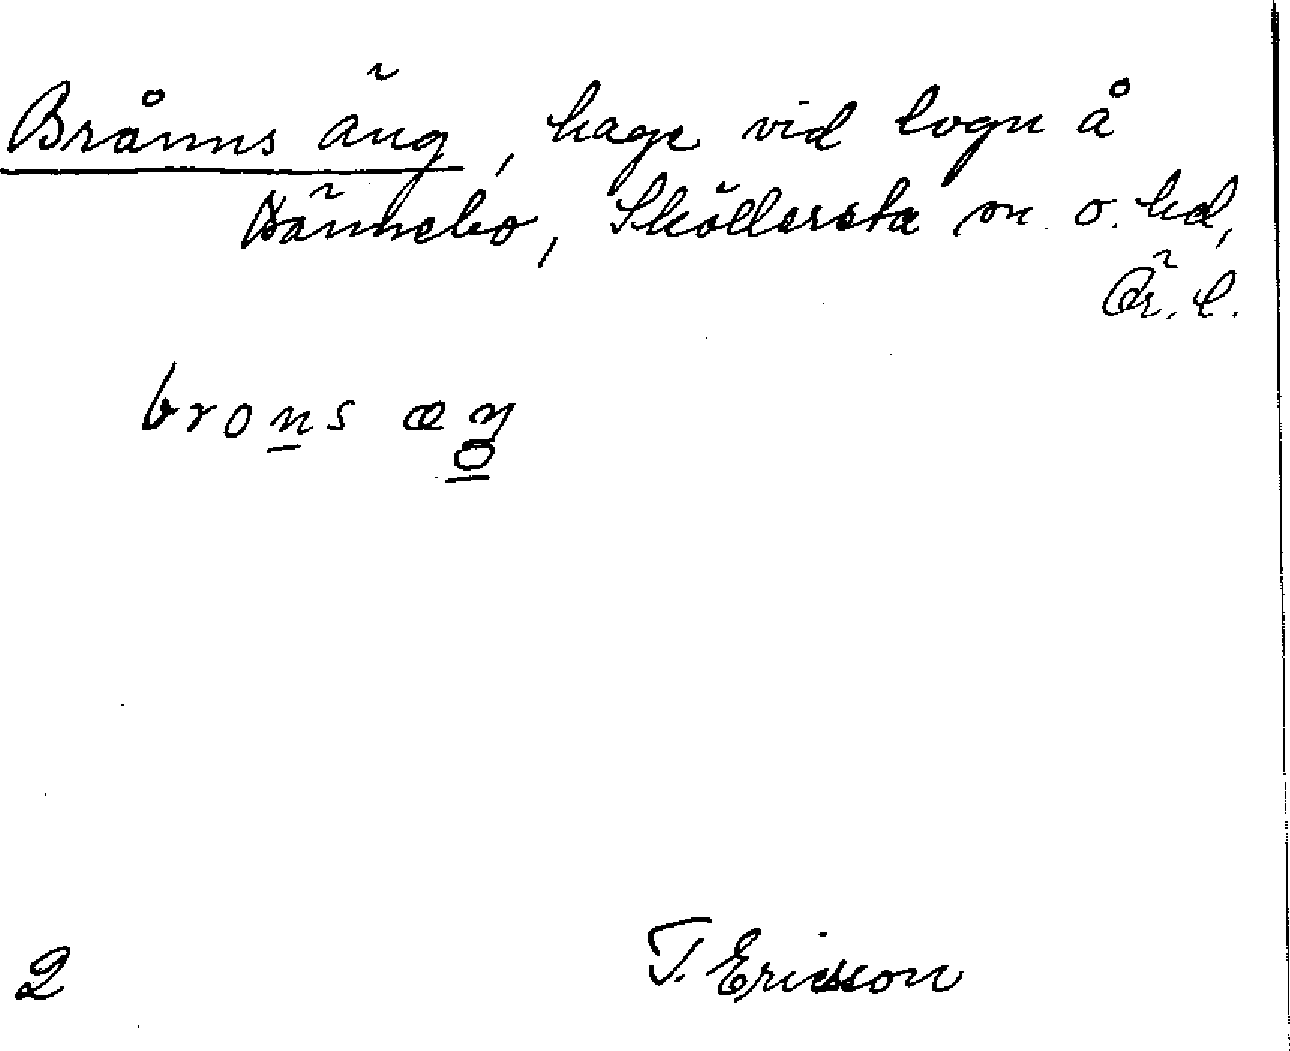 Brånns äng, hage vid logn å
Hännebo, Sköllersta sn o. hd,
Ör. l.
brons æŋ
2 T. Ericsson